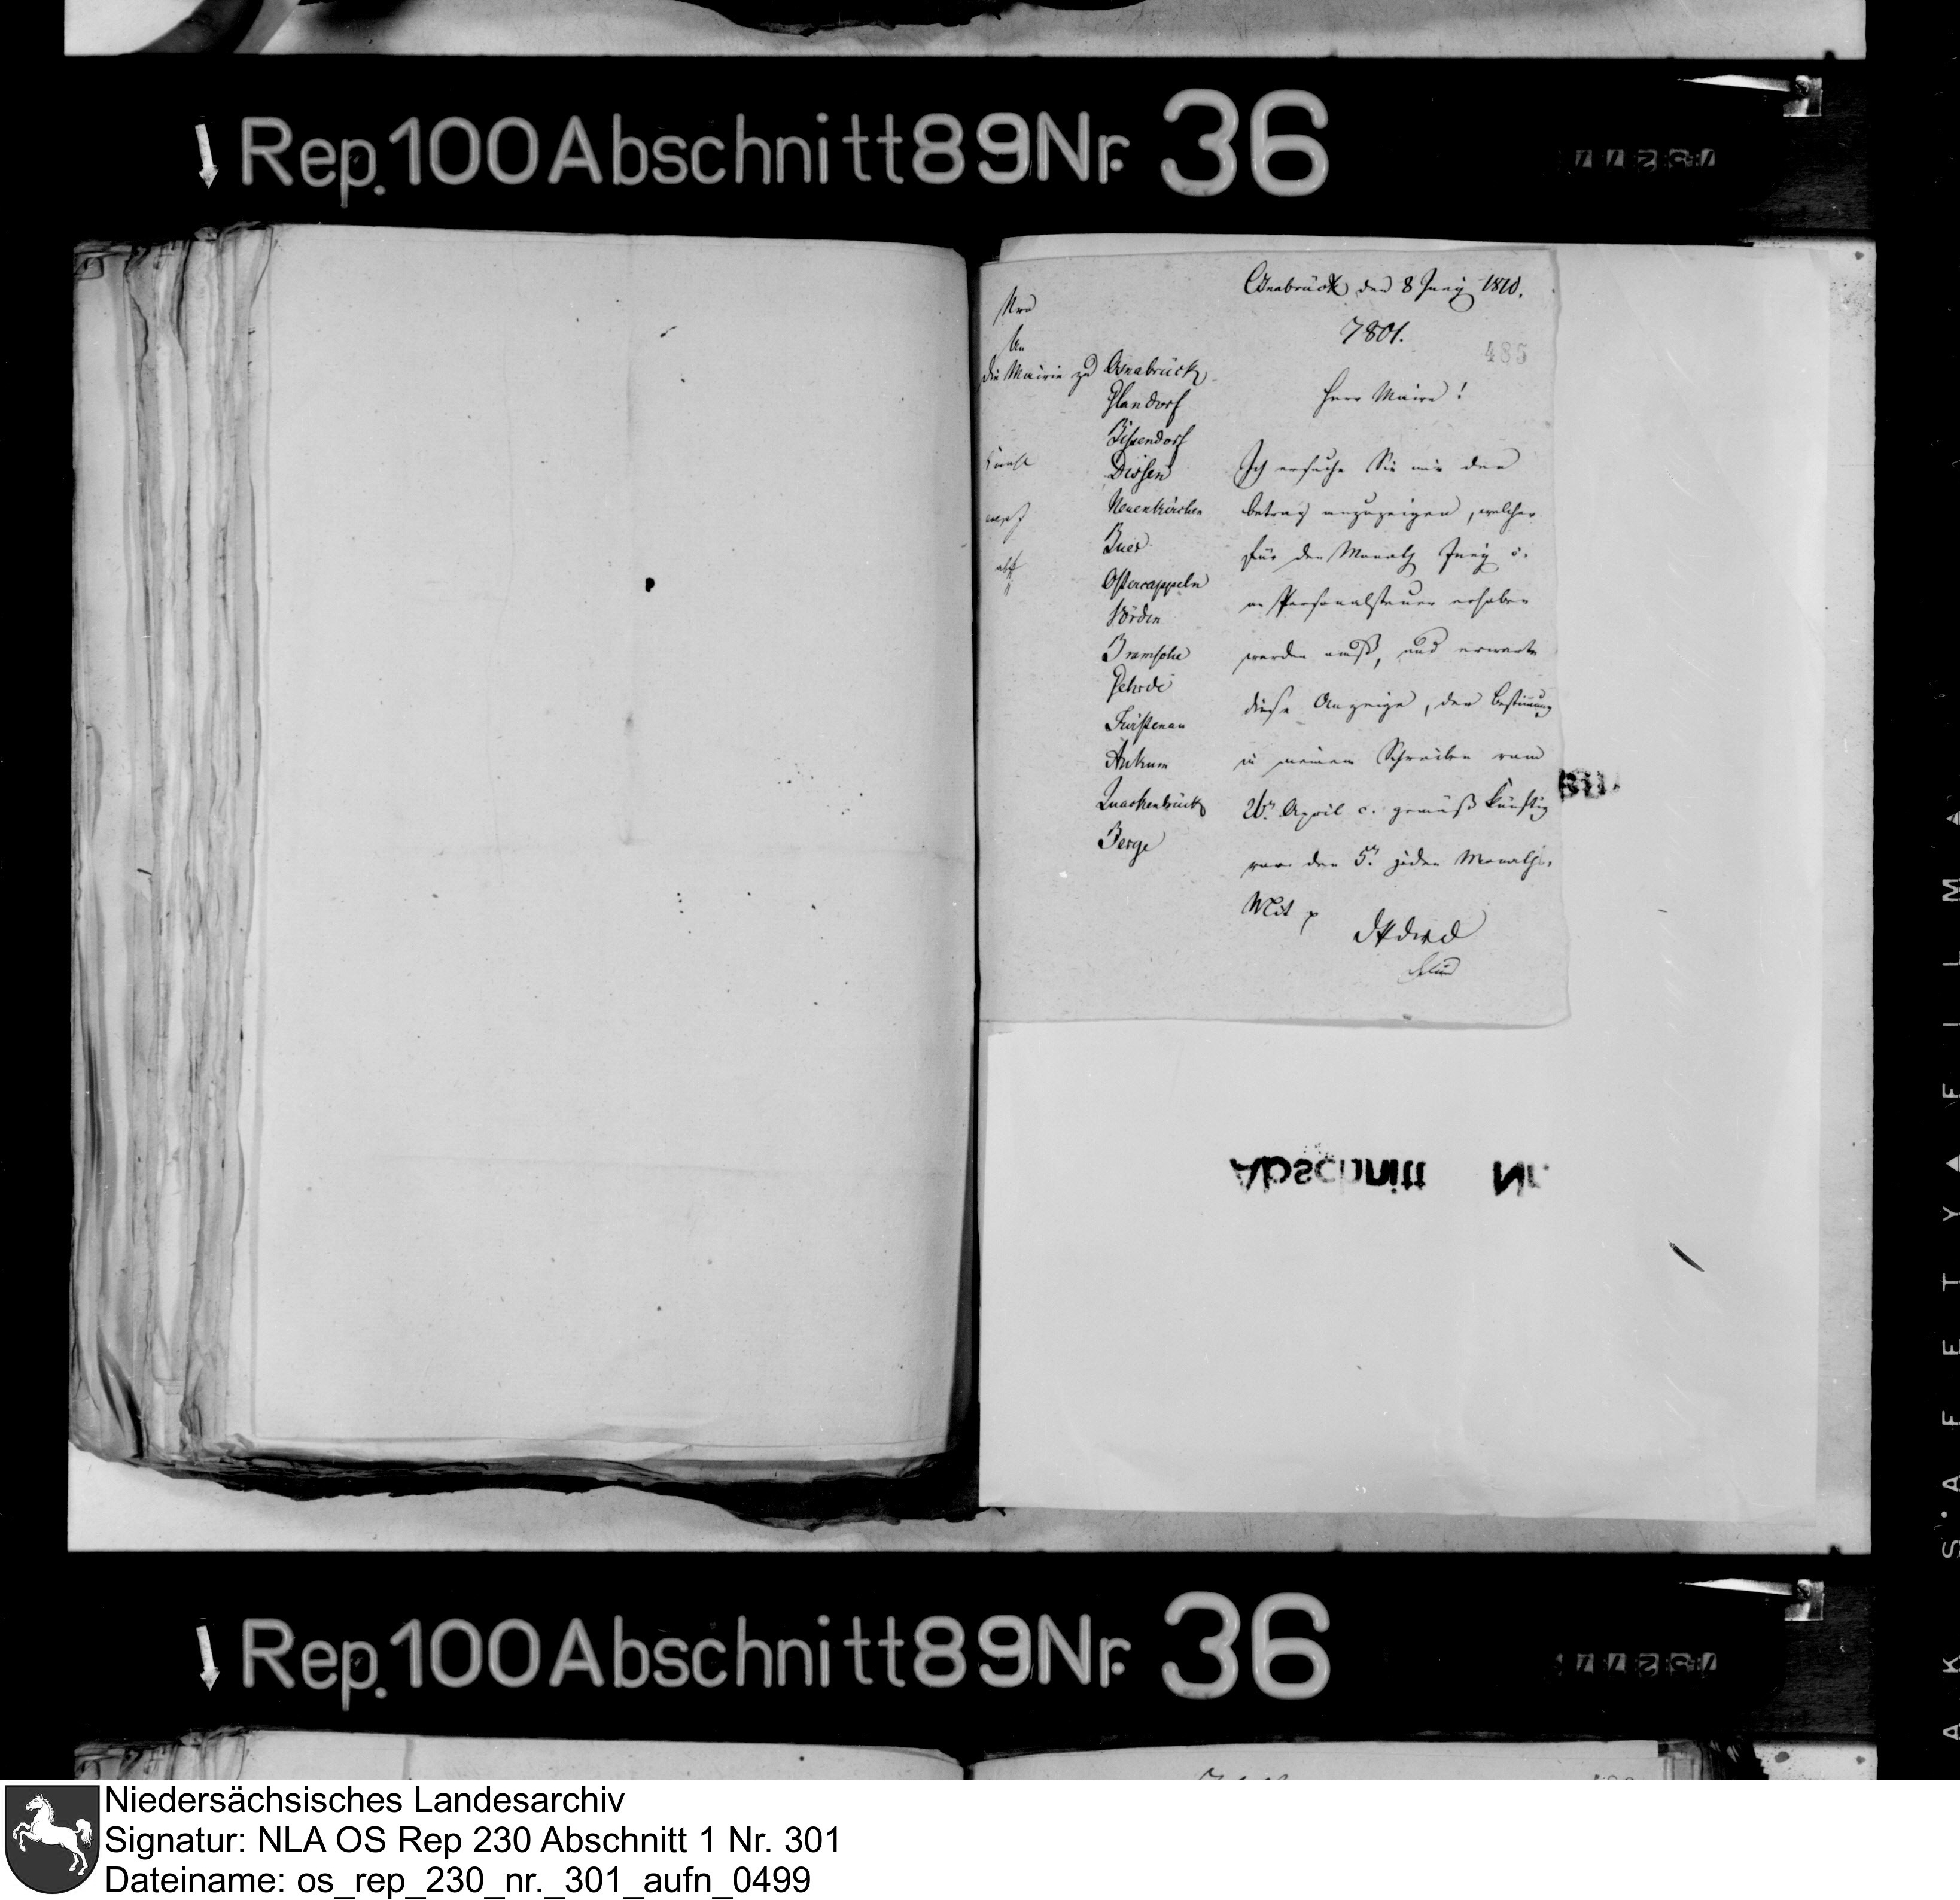 Rep. 100 Abschnitt 89 Nr. 36
Osnabrück den 8 Juny 1810.
7801.
485
An
die Mairie zu Osnabrück
Glandorf
Bissendorf
Dissen
Neuenkirchen
Buer
Ostercappeln
Vörden
Bramsche
Gehrde
Fürstenau
Ankum
Quackenbrück
Berge
Herr Maire!
Ich ersuche Sie mir den
betrag anzuzeigen, welcher
für den Monath Juny c.
an Personalsteuer erhoben
werden muß, und erwarte
diese Anzeige, der Bestimmung
in meinem Schreiben vom
26n. April c. gemäß künftig
vor den 5n. jeden Monaths.
Mit
Abschnitt Nr.
Rep. 100 Abschnitt 89 Nr. 36
SAFETY FILM
Niedersächsisches Landesarchiv
Signatur: NLA OS Rep 230 Abschnitt 1 Nr. 301
Dateiname: os_rep_230_nr._301_aufn_0499